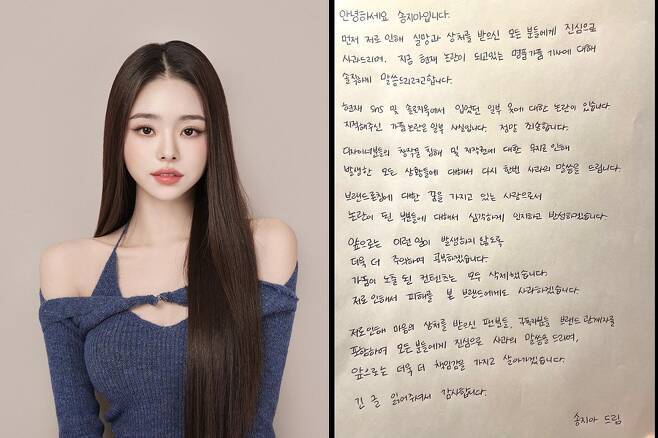 안녕하세요 송지아입니다.
먼저 저로 인해 실망과 상처를 받으신 모든 분들에게 진심으로
사과드리며, 지금 현재 논란이 되고있는 명품가품 기사에 대해
솔직하게 말씀드리려고합니다.
현재 sns 및 솔로지옥에서 입었던 일부 옷에 대한 논란이 있습니다.
지적해주신 가품논란은 일부 사실입니다. 정말 죄송합니다.
디자이너분들의 창작물 침해 및 저작권에 대한 무지로 인해
발생한 모든 상황들에 대해서 다시 한번 사과의 말씀을 드립니다.
브랜드론칭에 대한 꿈을 가지고 있는 사람으로서
논란이 된 부분들에 대해서 심각하게 인지하고 반성하겠습니다.
앞으로는 이런 일이 발생하지 않도록
더욱 더 주의하며 공부하겠습니다.
가품이 노출 된 컨텐츠는 모두 삭제했습니다.
저로 인해서 피해를 본 브랜드에게도 사과하겠습니다.
저로인해 마음의 상처를 받으신 팬분들, 구독자분들 브랜드 관계자를
포함하여 모든 분들에게 진심으로 사과의 말씀을 드리며,
앞으로는 더욱 더 책임감을 가지고 살아가겠습니다.
긴 글 읽어주셔서 감사합니다.
송지아 드림